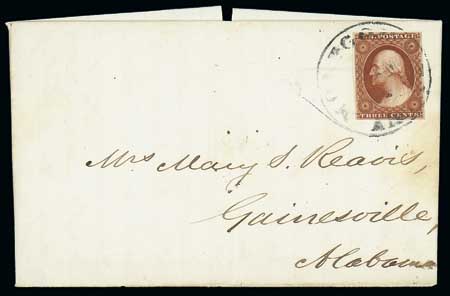 U.S. POSTAGE
THREE CENTS
Mrs Mary S. Reavis,
Gainesville,
Alabama